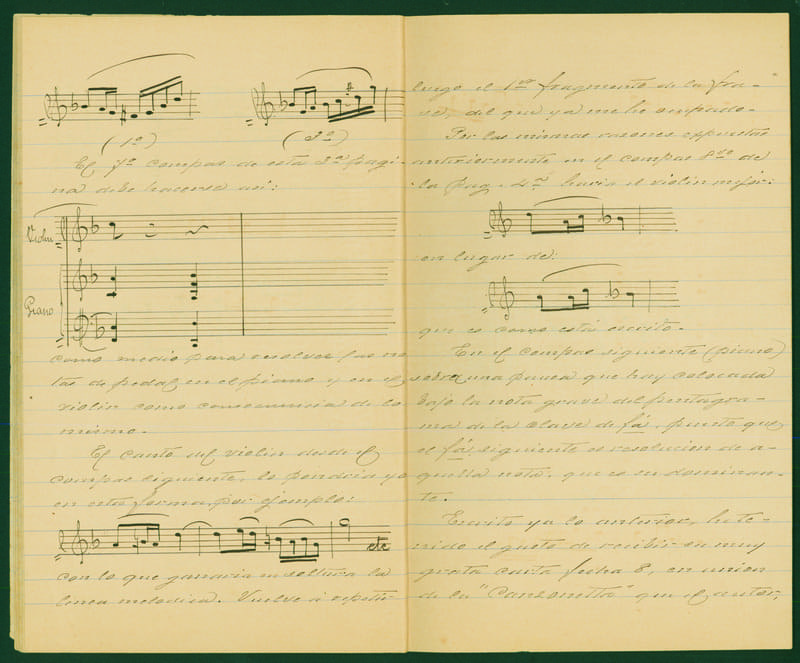 (1º) (2º)
El 7º compas de esta 2ª pági-
na debe hacerse asi:
Violin
Piano
como medio para resolver las no-
tas de pedal en el piano y en el
violin como consecuencia de lo
mismo.
El canto del violin desde el
compas siguiente, lo pondria yo
en esta forma, por ejemplo:
etc
con lo que ganaria en soltura la
linea melodica. Vuelve á repetir
luego el 1er fragmento de la fra-
se, del que ya me he ocupado.
Por las mismas razones expuestas
anteriormente en el compas 8º de
la pag. 4ª haria el violin mejor:
en lugar de:
que es como está escrito.
En el compas siguiente (piano)
sobra una pausa que hay colocada
bajo la nota grave del pentagra-
ma de la clave de fá, puesto que
el fá siguiente es resolucion de a-
quella nota, que es su dominan-
te.
Escrito ya lo anterior, he te-
nido el gusto de recibir su muy
grata carta fecha 8, en union
de la "Canzonetta" que el autor,